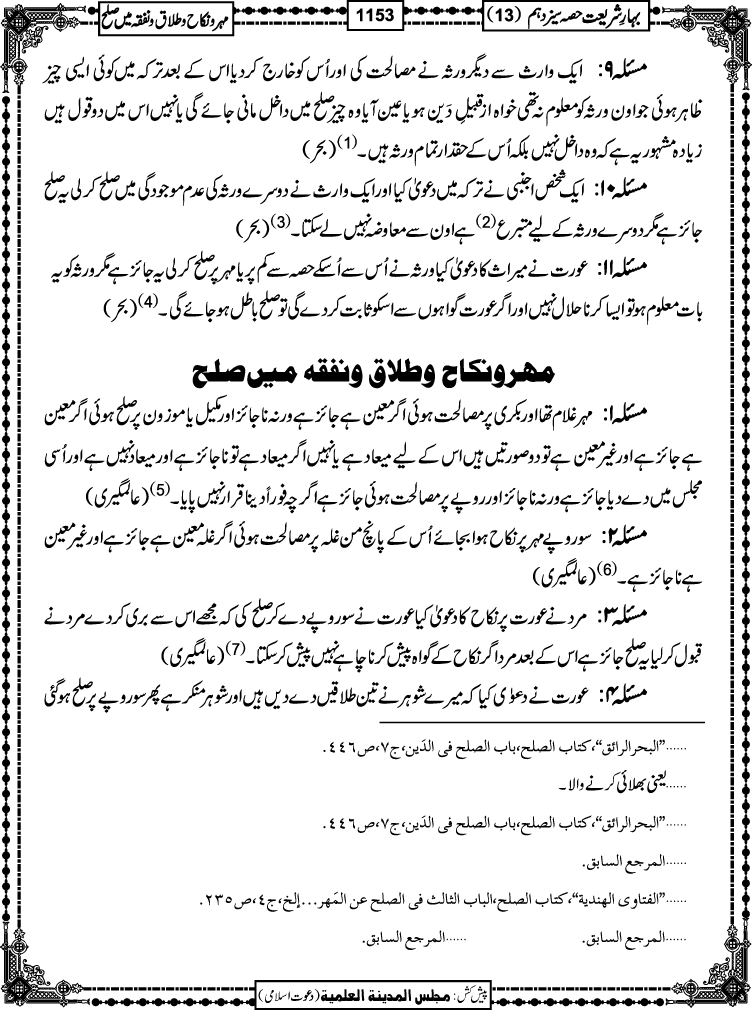 بہارِ شریعت حصہ سیزدہم (13)
1153
مہر و نکاح و طلاق و نفقہ میں صلح
مسئلہ ۹: ایک وارث سے دیگر ورثہ نے مصالحت کی اور اُس کو خارج کر دیا اس کے بعد ترکہ میں کوئی ایسی چیز
ظاہر ہوئی جو اون ورثہ کو معلوم نہ تھی خواہ از قبیلِ دَین ہو یا عین آیا وہ چیز صلح میں داخل مانی جائے گی یا نہیں اس میں دو قول ہیں
زیادہ مشہور یہ ہے کہ وہ داخل نہیں بلکہ اُس کے حقدار تمام ورثہ ہیں۔(1) (بحر)
مسئلہ ۱۰: ایک شخص اجنبی نے ترکہ میں دعویٰ کیا اور ایک وارث نے دوسرے ورثہ کی عدم موجودگی میں صلح کر لی یہ صلح
جائز ہے مگر دوسرے ورثہ کے لیے متبرع(2) ہے اون سے معاوضہ نہیں لے سکتا۔(3) (بحر)
مسئلہ ۱۱: عورت نے میراث کا دعویٰ کیا ورثہ نے اُس سے اُسکے حصہ سے کم پر یا مہر پر صلح کر لی یہ جائز ہے مگر ورثہ کو یہ
بات معلوم ہو تو ایسا کرنا حلال نہیں اور اگر عورت گواہوں سے اسکو ثابت کر دے گی تو صلح باطل ہو جائے گی۔(4) (بحر)
مہر و نکاح و طلاق و نفقہ میں صلح
مسئلہ ۱: مہر غلام تھا اور بکری پر مصالحت ہوئی اگر معین ہے جائز ہے ورنہ ناجائز اور مکیل یا موزون پر صلح ہوئی اگر معین
ہے جائز ہے اور غیر معین ہے تو دو صورتیں ہیں اس کے لیے میعاد ہے یا نہیں اگر میعاد ہے تو ناجائز ہے اور میعاد نہیں ہے اور اُسی
مجلس میں دے دیا جائز ہے ورنہ ناجائز اور روپے پر مصالحت ہوئی جائز ہے اگرچہ فوراً دینا قرار نہیں پایا۔(5) (عالمگیری)
مسئلہ ۲: سو روپے مہر پر نکاح ہوا بجائے اُس کے پانچ من غلہ پر مصالحت ہوئی اگر غلہ معین ہے جائز ہے اور غیر معین
ہے ناجائز ہے۔(6) (عالمگیری)
مسئلہ ۳: مرد نے عورت پر نکاح کا دعویٰ کیا عورت نے سو روپے دے کر صلح کی کہ مجھے اس سے بری کر دے مرد نے
قبول کر لیا یہ صلح جائز ہے اس کے بعد مرد اگر نکاح کے گواہ پیش کرنا چاہے نہیں پیش کر سکتا۔(7) (عالمگیری)
مسئلہ ۴: عورت نے دعویٰ کیا کہ میرے شوہر نے تین طلاقیں دے دیں ہیں اور شوہر منکر ہے پھر سو روپے پر صلح ہو گئی
......"البحرالرائق"، کتاب الصلح، باب الصلح فی الدَین، ج۷، ص٤٤٦.
......یعنی بھلائی کرنے والا۔
......"البحرالرائق"، کتاب الصلح، باب الصلح فی الدَین، ج۷، ص٤٤٦.
......المرجع السابق.
......"الفتاوی الھندیة"، کتاب الصلح، الباب الثالث فی الصلح عن المَھر...إلخ، ج٤، ص٢٣٥.
......المرجع السابق. ......المرجع السابق.
پیش کش: مجلس المدینة العلمیة (دعوتِ اسلامی)